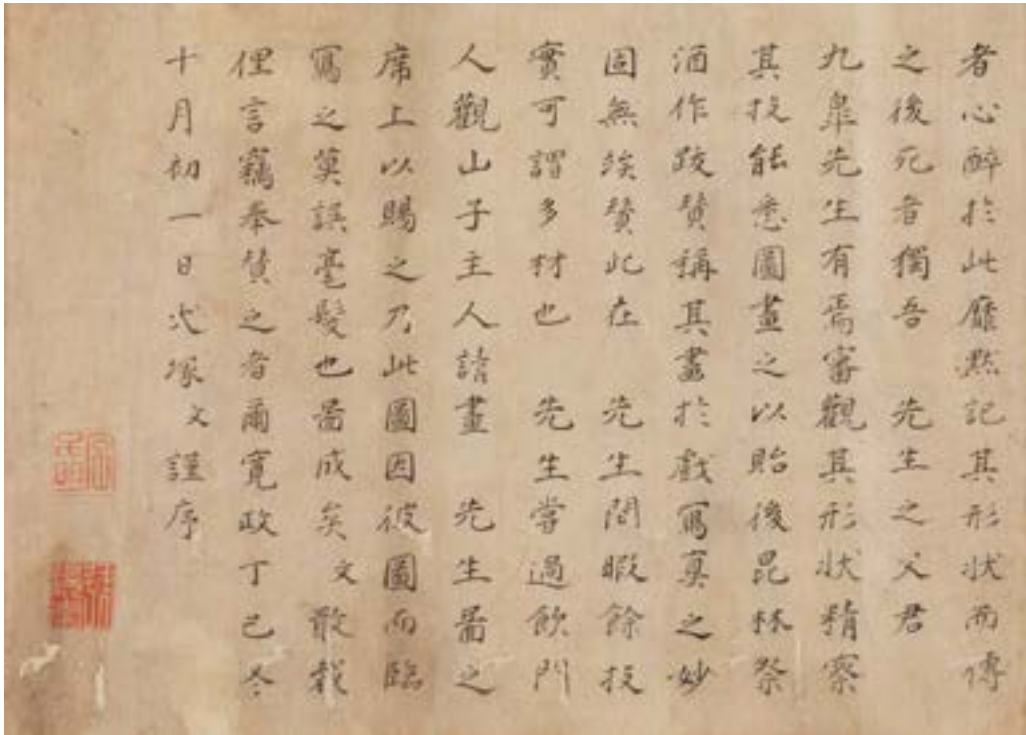 者心醉於此靡默記其形狀而傳
之後死者獨吾 先生之父君
九皐先生有焉審觀其形狀精察
其技能悉圖畫之以貽後昆林祭
酒作跋賛稱其畫於戲寫真之妙
固無竢賛此在 先生間暇餘技
實可謂多材也 先生嘗過飲門
人觀山子主人請畫 先生啚之
席上以賜之乃此圖因彼圖而臨
寫之莫誤毫髮也啚成矣 文敢裁
俚言竊奉賛之者爾寬政丁己冬
十月初一日犬塚文謹序